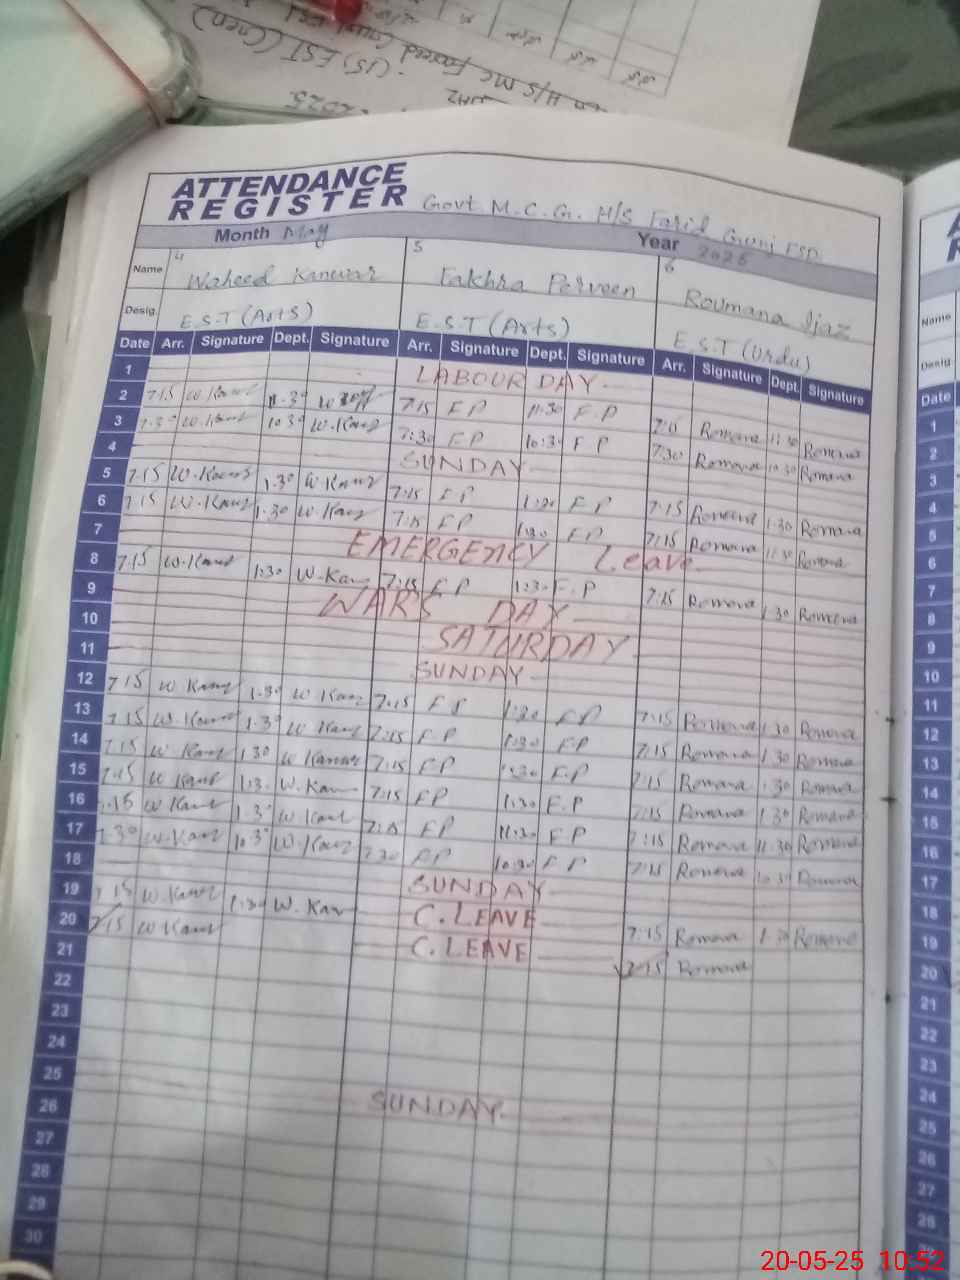 (15) EST (Gen)
2025
ATTENDANCE
REGISTER Govt M.C.G. H/S Farid Gunj FSD
Month May Year 2025
Name 4 Waheed Kanwar 5 Fakhra Perveen 6 Roumana Ijaz
Desig. E.S.T (Arts) E.S.T (Arts) E.S.T (Urdu)
Date Arr. Signature Dept. Signature Arr. Signature Dept. Signature Arr. Signature Dept. Signature
1 LABOUR DAY
2 7:15 W.Kanz 11:30 7:15 F P 11:30 F.P 7:15 Romana 11:30 Romana
3 7:30 W.Kanz 10:30 W.Kanz 7:30 F P 10:30 F P 7:30 Romana 10:30 Romana
4 SUNDAY
5 7:15 W.Kanz 1:30 W.Kanz 7:15 F P 1:30 F P 7:15 Romana 1:30 Romana
6 7:15 W.Kanz 1:30 W.Kanz 7:15 F P 1:30 F P 7:15 Romana 11:30 Romana
7 EMERGENCY Leave
8 7:15 W.Kanz 1:30 W.Kanz 7:15 F P 1:30 F.P 7:15 Romana 1:30 Romana
9 WAR'S DAY
10 SATURDAY
11 SUNDAY
12 7:15 W Kanz 1:30 W Kanz 7:15 F P 1:30 F P 7:15 Romana 1:30 Romana
13 7:15 W.Kanz 1:30 W Kanz 7:15 F P 1:30 F P 7:15 Romana 1:30 Romana
14 7:15 W Kanz 1:30 W Kanz 7:15 F P 1:30 F.P 7:15 Romana 1:30 Romana
15 7:15 W Kanz 1:30 W.Kanz 7:15 F P 1:30 F.P 7:15 Romana 1:30 Romana
16 7:15 W Kanz 1:30 W Kanz 7:15 F P 11:30 F P 7:15 Romana 11:30 Romana
17 7:30 W.Kanz 10:30 W.Kanz 7:30 F P 10:30 F P 7:15 Romana 10:30 Romana
18 SUNDAY
19 7:15 W.Kanz 1:30 W.Kanz C.LEAVE 7:15 Romana 1:30 Romana
20 7:15 W Kanz C.LEAVE 7:15 Romana
21
22
23
24
25 SUNDAY
26
27
28
29
30
Name
Desig
Date
1
2
3
4
5
6
7
8
9
10
11
12
13
14
15
16
17
18
19
20
21
22
23
24
25
26
27
28
20-05-25 10:52